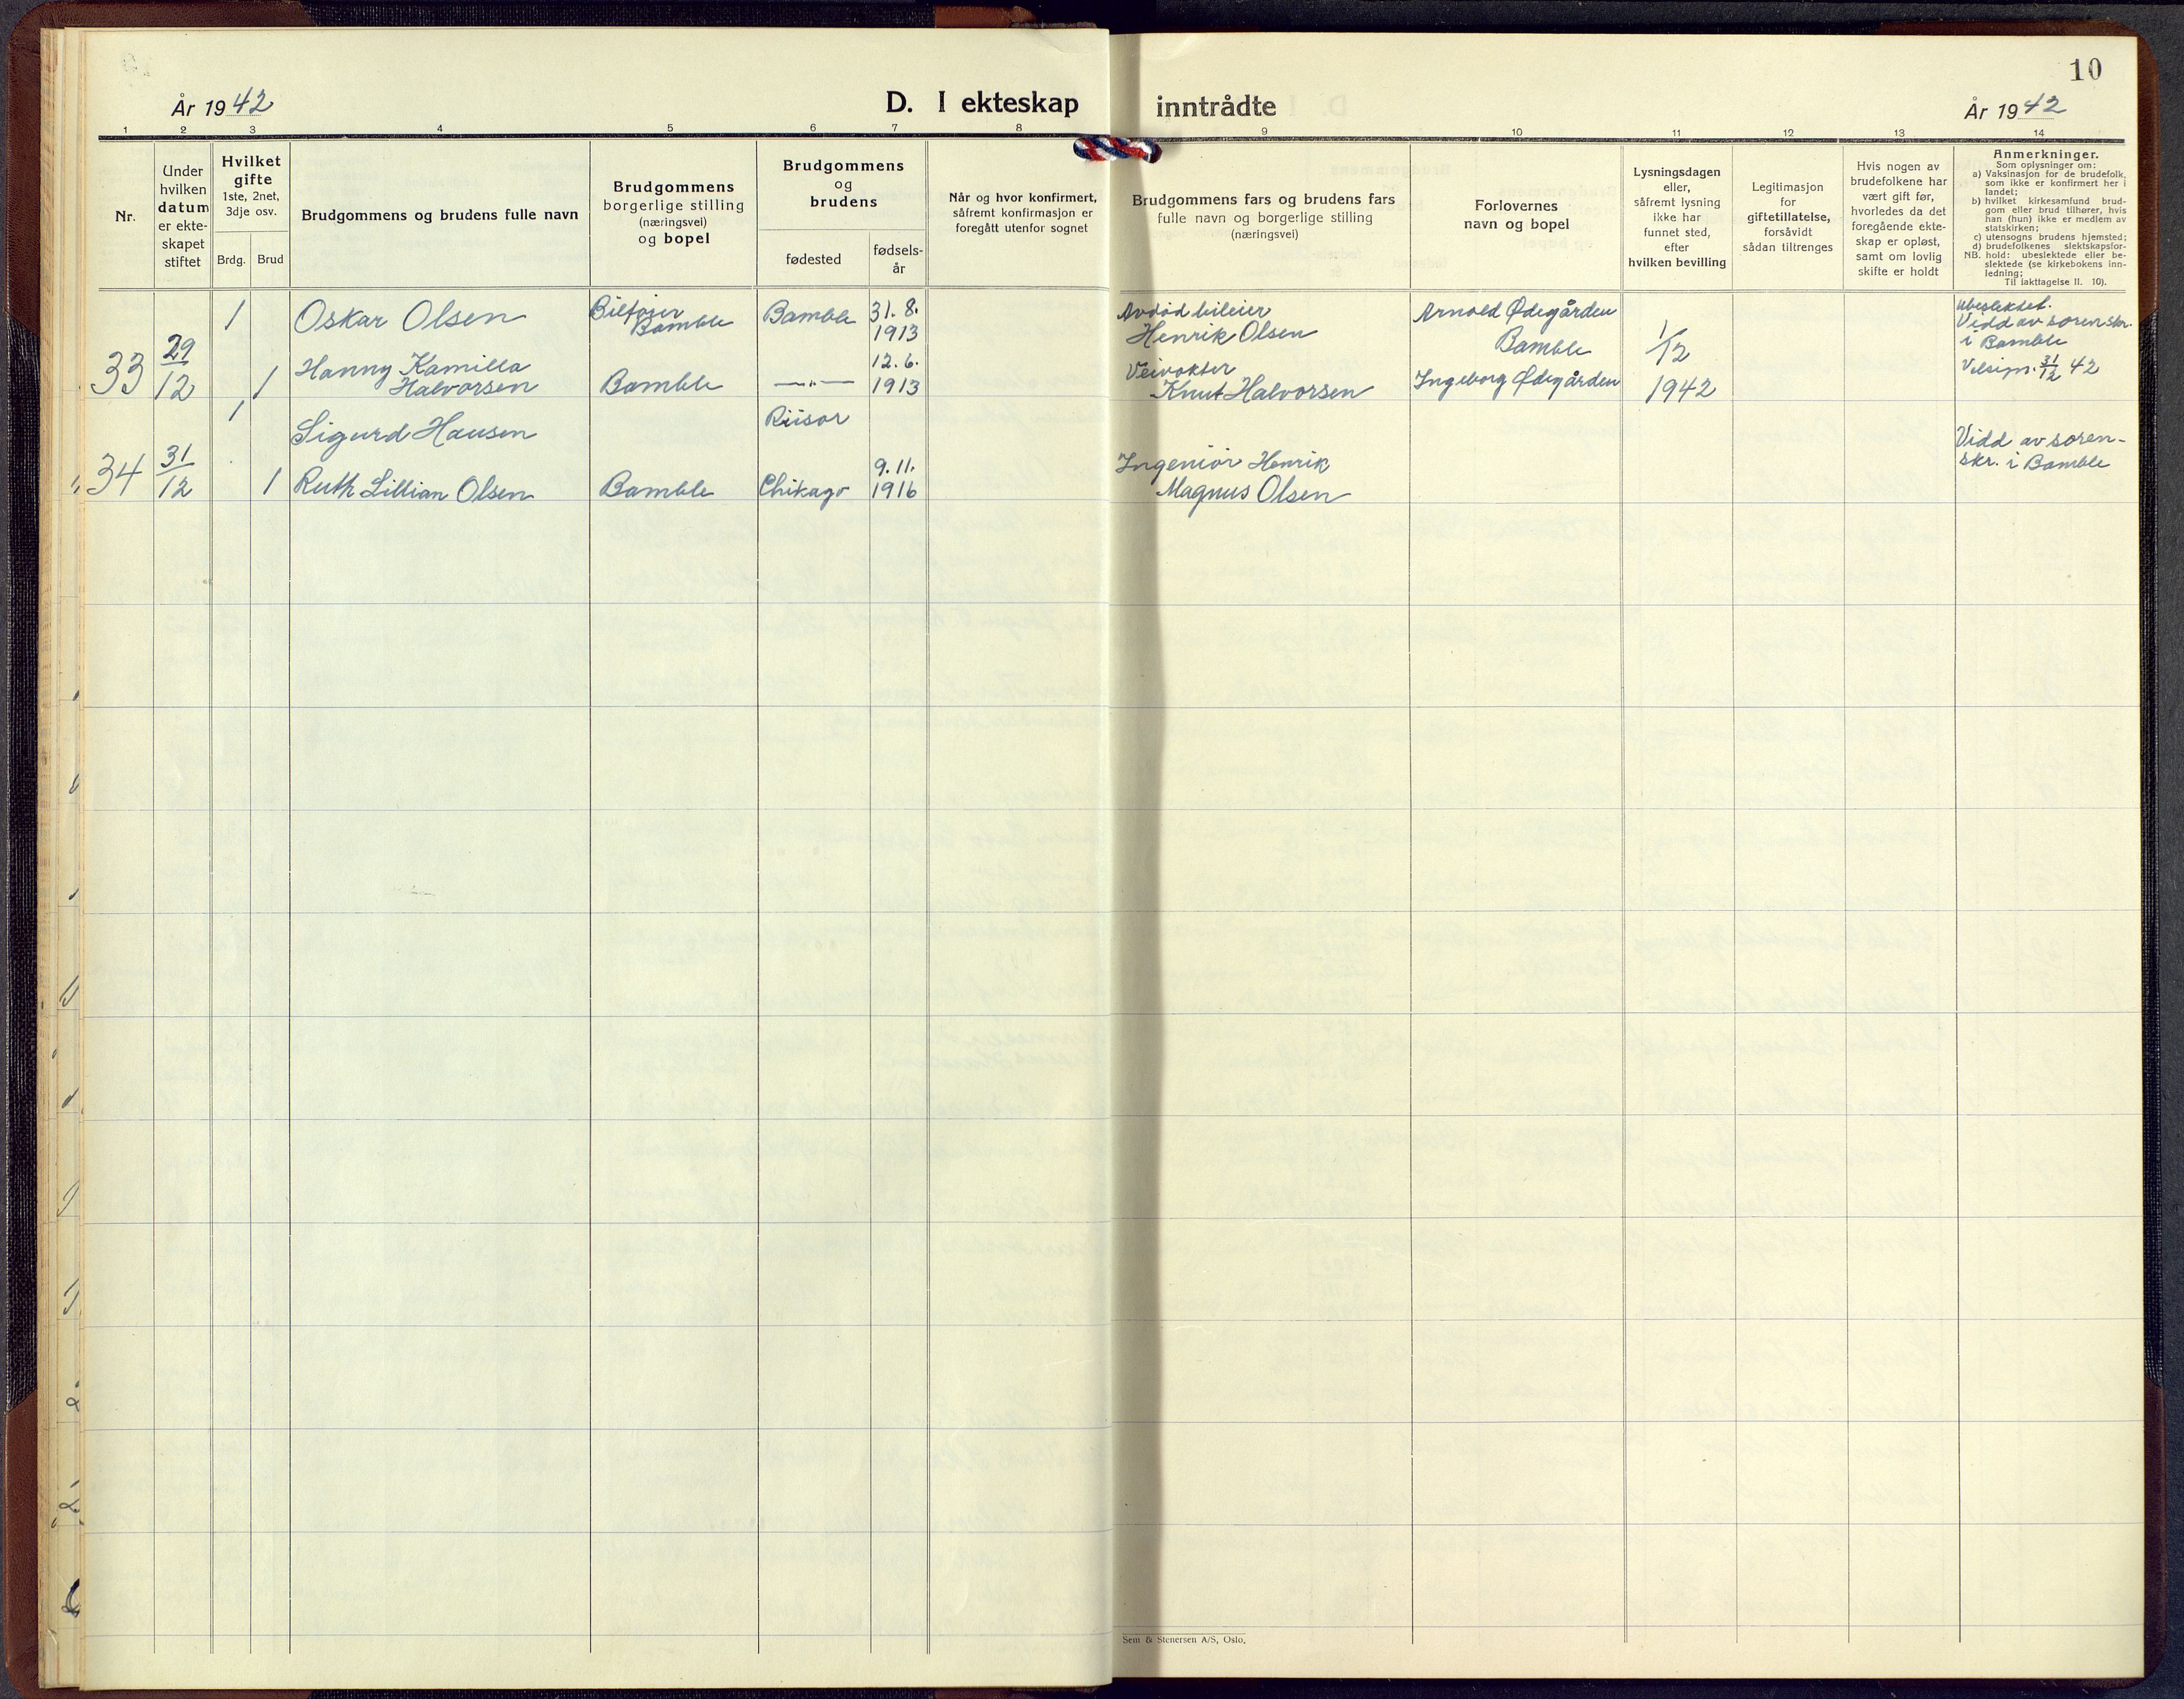 10
År 1942
D. I ekteskap inntrådte
År 1942
1 2 3 4 5 6 7 8 9 10 11 12 13 14
Nr.
Under
hvilken
datum
er ekte-
skapet
stiftet
Hvilket
gifte
1ste, 2net,
3dje osv.
Brdg. Brud
Brudgommens og brudens fulle navn
Brudgommens
borgerlige stilling
(næringsvei)
og bopel
Brudgommens
og
brudens
fødested
fødsels-
år
Når og hvor konfirmert,
såfremt konfirmasjon er
foregått utenfor sognet
Brudgommens fars og brudens fars
fulle navn og borgerlige stilling
(næringsvei)
Forlovernes
navn og bopel
Lysningsdagen
eller,
såfremt lysning
ikke har
funnet sted,
efter
hvilken bevilling
Legitimasjon
for
giftetillatelse,
forsåvidt
sådan tiltrenges
Hvis nogen av
brudefolkene har
vært gift før,
hvorledes da det
foregående ekte-
skap er opløst,
samt om lovlig
skifte er holdt
Anmerkninger.
Som oplysninger om:
a) Vaksinasjon for de brudefolk,
som ikke er konfirmert her i
landet;
b) hvilket kirkesamfund brud-
gom eller brud tilhører, hvis
han (hun) ikke er medlem av
statskirken;
c) utensogns brudens hjemsted;
d) brudefolkenes slektskapsfor-
NB. hold: ubeslektede eller be-
slektede (se kirkebokens inn-
ledning;
Til iakttagelse II. 10).
33
29/12
1
Oskar Olsen
Bilfører
Bamble
Bamble
31. 8.
1913
Avdød bileier
Henrik Olsen
Arnold Ødegården
Bamble
1/12
1942
ubeslektet.
Vidd av sorenskr.
i Bamble
Velsign. 31/12 42
1
Hanny Kamilla
Halvorsen
Bamble
—"—
12. 6.
1913
Veivokter
Knut Halvorsen
Ingeborg Ødegården
34
31/12
1
Sigurd Hansen
Riisør
Vidd av soren-
skr. i Bamble
1
Ruth Lillian Olsen
Bamble
Chikago
9. 11.
1916
Ingeniør Henrik
Magnus Olsen
Sem & Stenersen A/S, Oslo.